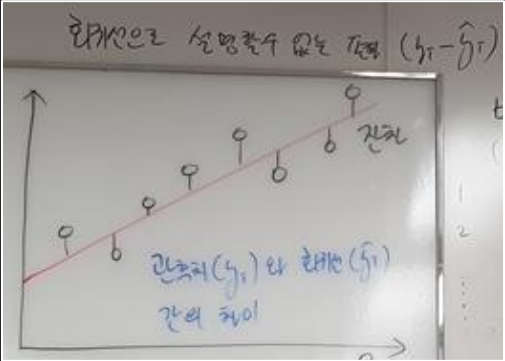 회귀선으로 설명할수 없는 (yᵢ-ŷᵢ)
잔차
관측치(yᵢ)와 회귀선(ŷᵢ)
간의 차이
1
2